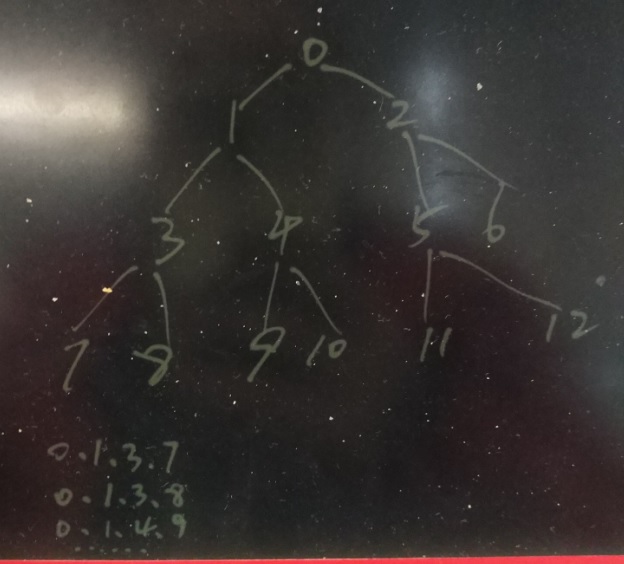 0
1 2
3 4 5 6
7 8 9 10 11 12
0.1.3.7
0.1.3.8
0.1.4.9
......